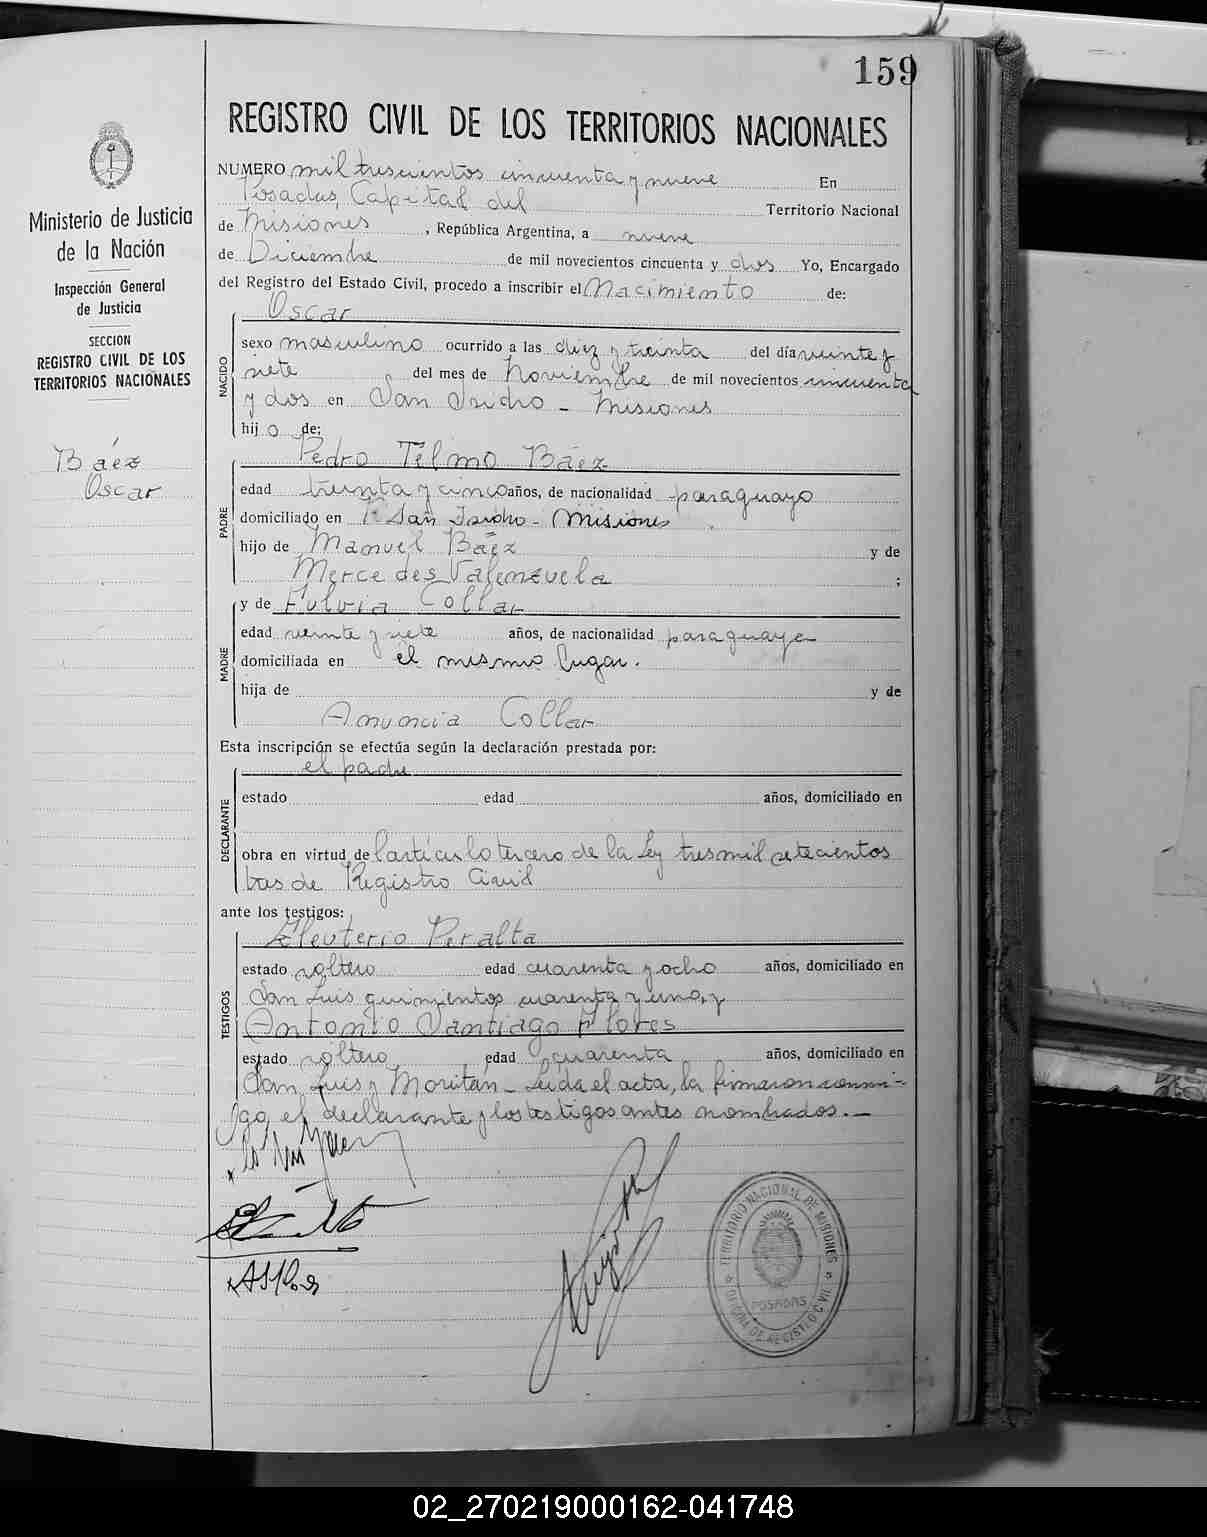 159
REGISTRO CIVIL DE LOS TERRITORIOS NACIONALES
Ministerio de Justicia
de la Nación
Inspección General
de Justicia
SECCION
REGISTRO CIVIL DE LOS
TERRITORIOS NACIONALES
Báez
Oscar
NUMERO mil trescientos cincuenta y nueve En
Posadas, Capital del Territorio Nacional
de Misiones, República Argentina, a nueve
de Diciembre de mil novecientos cincuenta y dos Yo, Encargado
del Registro del Estado Civil, procedo a inscribir el Nacimiento de:
Oscar
NACIDO
sexo masculino ocurrido a las diez y treinta del día veinte y
siete del mes de Noviembre de mil novecientos cincuenta
y dos en San Isidro - Misiones
hijo de:
Pedro Telmo Báez
PADRE
edad treinta y cinco años, de nacionalidad paraguayo
domiciliado en San Isidro - Misiones
hijo de Manuel Báez y de
Mercedes Valenzuela ;
MADRE
y de Fulvia Collar
edad veinte y siete años, de nacionalidad paraguaya
domiciliada en el mismo lugar.
hija de y de
Anuncia Collar
Esta inscripción se efectúa según la declaración prestada por:
el padre
DECLARANTE
estado edad años, domiciliado en
obra en virtud de l'artículo tercero de la Ley tres mil setecientos
tres de Registro Civil
ante los testigos:
Eleuterio Peralta
TESTIGOS
estado soltero edad cuarenta y ocho años, domiciliado en
San Luis quinientos cuarenta y uno, y
Antonio Santiago Flores
estado soltero edad cuarenta años, domiciliado en
San Luis y Moritán - Leída el acta, la firmaron conmi-
go, el declarante y los testigos antes nombrados.—
TERRITORIO NACIONAL DE MISIONES
POSADAS
OFICINA DE REGISTRO CIVIL
02_270219000162-041748